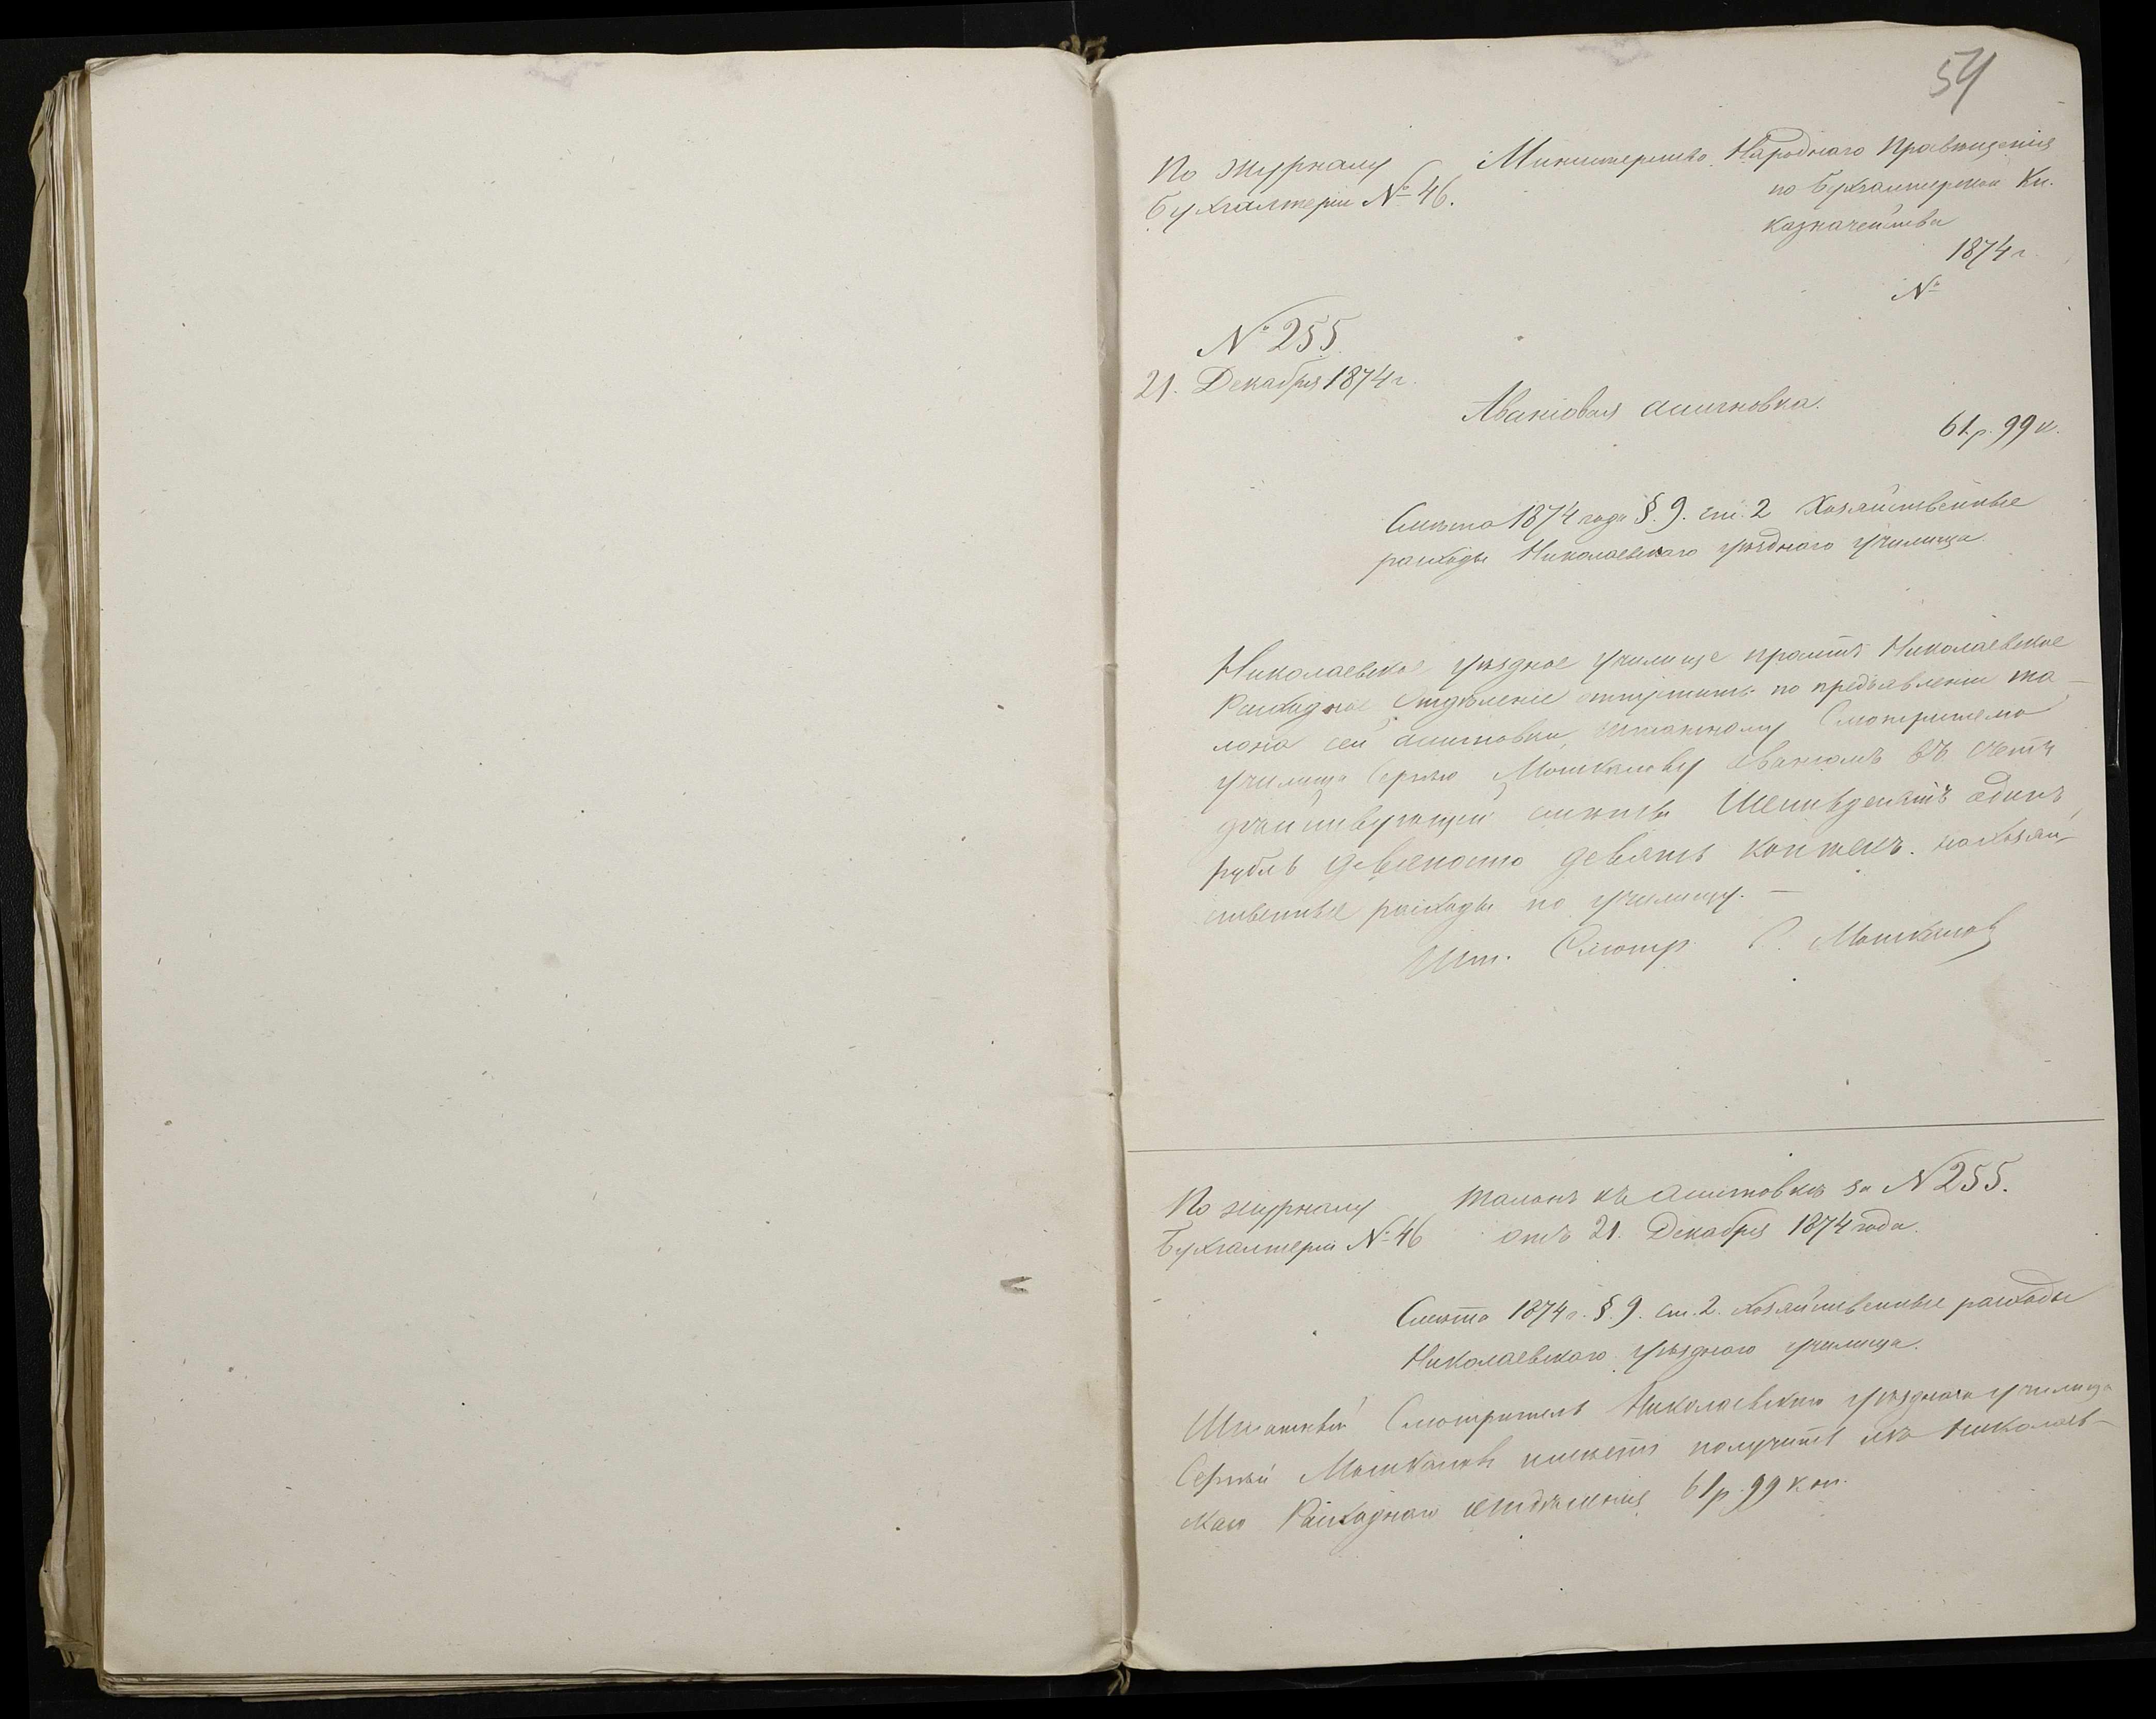 54
По журналу
Бухгалтеріи № 46.
Министерство Народнаго Просвѣщенія
по Бухгалтерской Кн.
Казначейства
1874 г.
№
№ 255
21. Декабря 1874 г.
Авансовая ассигновка.
61 р. 99 к.
Смѣта 1874 года § 9. ст. 2 Хозяйственные
расходы Николаевскаго уѣзднаго училища
Николаевское уѣздное училище проситъ Николаевское
Расходное Отдѣленіе отпустить по предъявленіи та-
лона сей ассигновки, штатному Смотрителю
училища Сергѣю Мошкалову авансомъ въ счетъ
дѣйствующей смѣты Шестьдесятъ одинъ
рубль девяносто девять копѣекъ. на хозяй-
ственные расходы по училищу. —
Шт. Смотр. С. Мошкалов
По журналу
Бухгалтеріи № 46
Талонъ къ ассигновкѣ за № 255.
отъ 21. Декабря 1874 года.
Смѣта 1874 г. § 9. ст. 2. Хозяйственные расходы
Николаевскаго уѣзднаго училища.
Штатный Смотритель Николаевскаго уѣзднаго училища
Сергѣй Мошкаловъ имѣетъ получить изъ Николаев-
скаго Расходнаго отдѣленія 61 р. 99 коп.